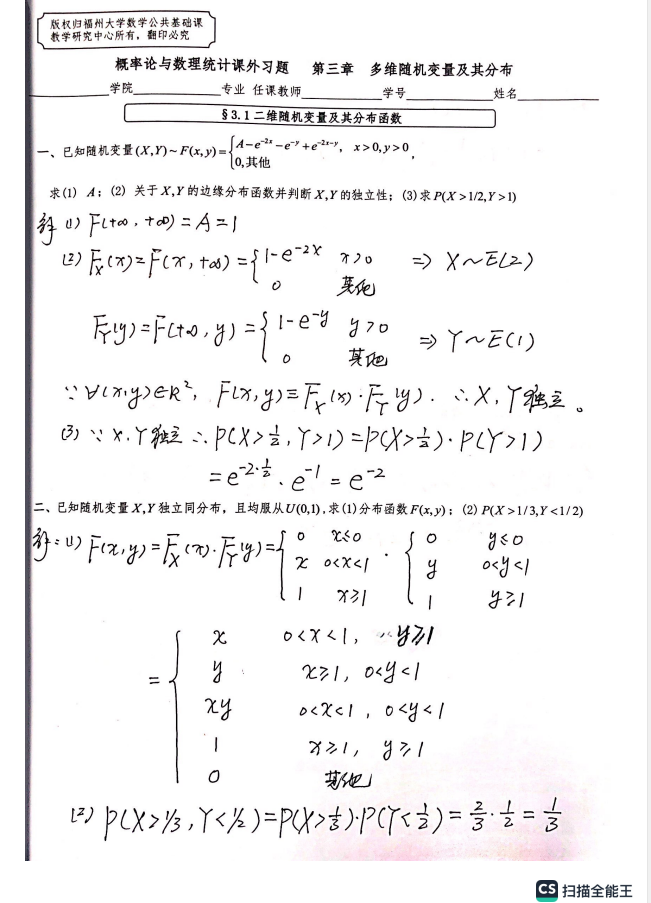 版权归福州大学数学公共基础课
教学研究中心所有，翻印必究
概率论与数理统计课外习题 第三章 多维随机变量及其分布
学院 专业 任课教师 学号 姓名
§3.1 二维随机变量及其分布函数
一、已知随机变量(X,Y)~F(x,y)={A-e^{-2x}-e^{-y}+e^{-2x-y}, x>0,y>0
0,其他 ,
求(1) A；(2) 关于X,Y的边缘分布函数并判断X,Y的独立性；(3)求P(X>1/2,Y>1)
解 (1) F(+∞,+∞)=A=1
(2) F_X(x)=F(x,+∞)={1-e^{-2x} x>0 ⇒ X~E(2)
0 其他
F_Y(y)=F(+∞,y)={1-e^{-y} y>0 ⇒ Y~E(1)
0 其他
∵∀(x,y)∈R², F(x,y)≡F_X(x)·F_Y(y). ∴X,Y独立。
(3) ∵X,Y独立 ∴P(X>1/2,Y>1)=P(X>1/2)·P(Y>1)
=e^{-2·1/2}·e^{-1}=e^{-2}
二、已知随机变量X,Y独立同分布，且均服从U(0,1),求(1)分布函数F(x,y)；(2) P(X>1/3,Y<1/2)
解:(1) F(x,y)=F_X(x)·F_Y(y)={0 x≤0 · {0 y≤0
x 0<x<1 y 0<y<1
1 x≥1 1 y≥1
={x 0<x<1, y≥1
y x≥1, 0<y<1
xy 0<x<1, 0<y<1
1 x≥1, y≥1
0 其他
(2) P(X>1/3,Y<1/2)=P(X>1/3)·P(Y<1/2)=2/3·1/2=1/3
CS 扫描全能王